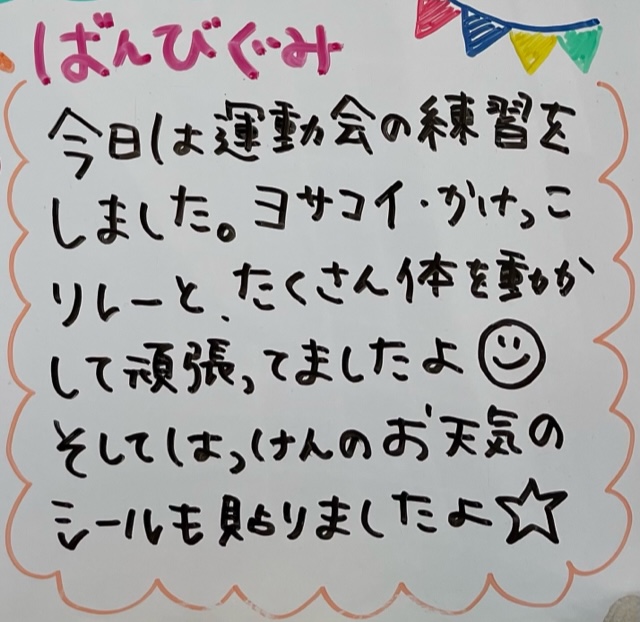 ばんびぐみ
今日は運動会の練習を
しました。ヨサコイ・かけっこ
リレーと、たくさん体を動か
して頑張ってましたよ
そしてはっけんのお天気の
シールも貼りましたよ☆